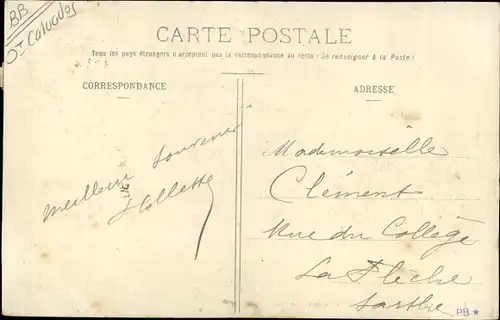 BB
Dt Calvados
CARTE POSTALE
Tous les pays étrangers n'acceptent pas la correspondance au recto (Se renseigner à la Poste)
CORRESPONDANCE
ADRESSE
Meilleur Souvenir
Collette
Mademoiselle
Clément
Rue du Collège
La Flèche
Sarthe
PB